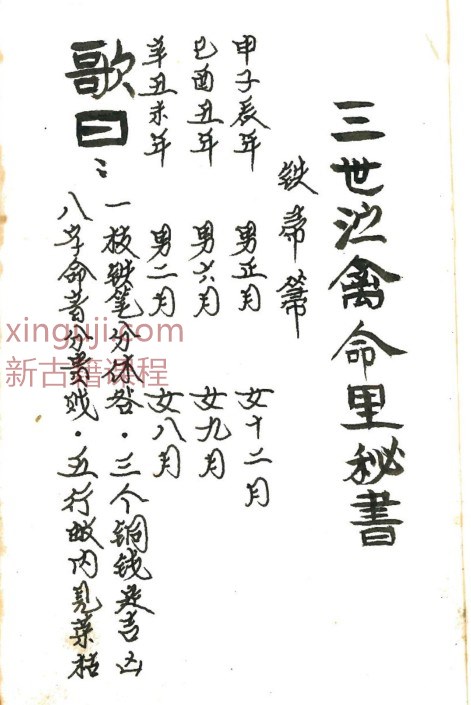 三世演禽命里秘書
铁帚箒
甲子辰年 男正月 女十二月
巳酉丑年 男六月 女九月
辛丑未年 男二月 女八月
歌曰:
一枝铁笔分休咎·三个铜钱定吉凶
八字命著分贵贱·五行内見荣枯
xinguji.com
新古籍课程